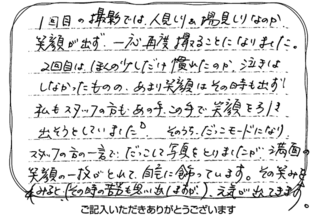 1回目の撮影では、人見しり&場見しりなのか
笑顔が出ず、一応再度撮ることになりました。
2回目は、ほんの少しだけ慣れたのか、泣きは
しなかったものの、あまり笑顔はその時も出ず
私もスタッフの方も、あの手、この手で笑顔を引き
出そうとしていました。そのうち、だっこモードになり
スタッフの方の一言で、だっこして写真をとりましたが、満面の
笑顔の一枚がとれて、自宅に飾っています。その笑みを
みると、(その時の苦労も思い出しますが)、元気が出てきます。
ご記入いただきありがとうございます